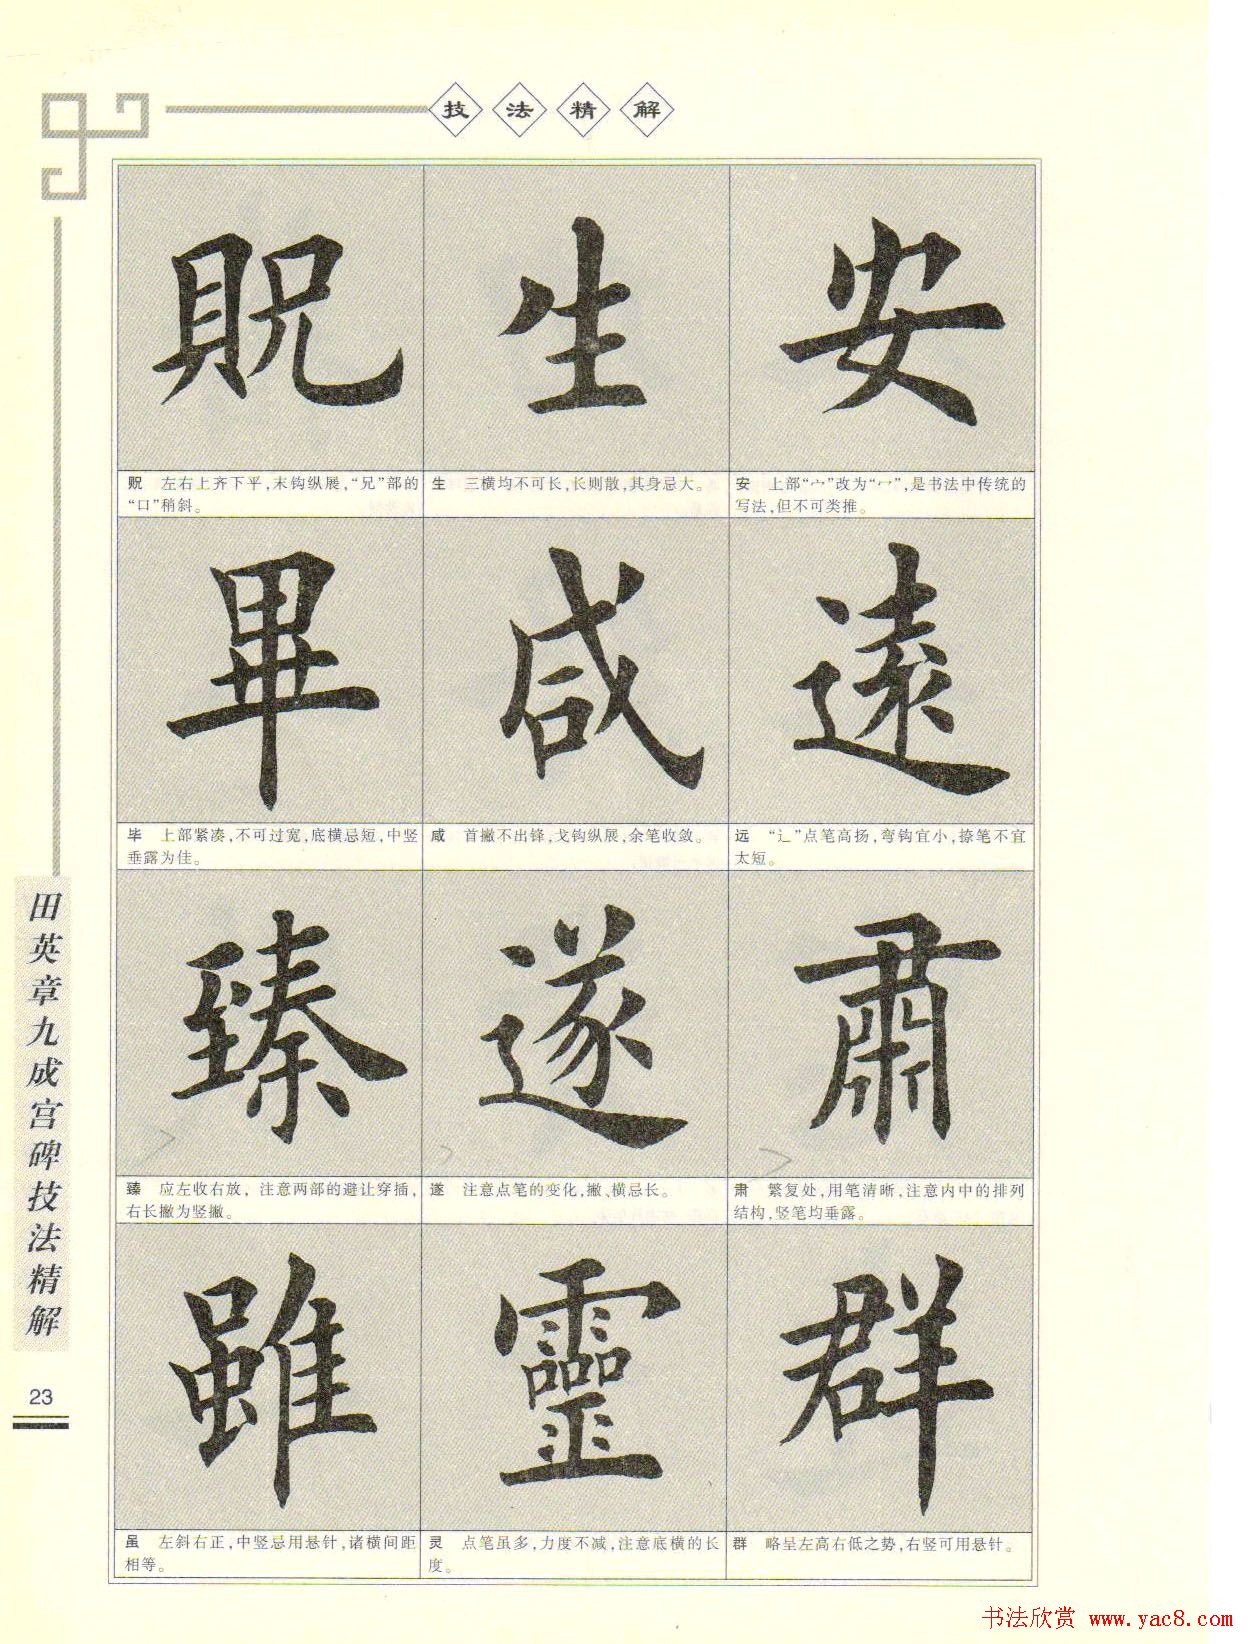 技法精解
贶 生 安
贶 左右上齐下平,末钩纵展,“兄”部的
“口”稍斜。
生 三横均不可长,长则散,其身忌大。
安 上部“宀”改为“冖”,是书法中传统的
写法,但不可类推。
畢 咸 遠
毕 上部紧凑,不可过宽,底横忌短,中竖
垂露为佳。
咸 首撇不出锋,戈钩纵展,余笔收敛。
远 “辶”点笔高扬,弯钩宜小,捺笔不宜
太短。
臻 遂 肅
臻 应左收右放,注意两部的避让穿插,
右长撇为竖撇。
遂 注意点笔的变化,撇、横忌长。
肃 繁复处,用笔清晰,注意内中的排列
结构,竖笔均垂露。
雖 靈 群
虽 左斜右正,中竖忌用悬针,诸横间距
相等。
灵 点笔虽多,力度不减,注意底横的长
度。
群 略呈左高右低之势,右竖可用悬针。
田英章九成宫碑技法精解
23
书法欣赏 www.yac8.com